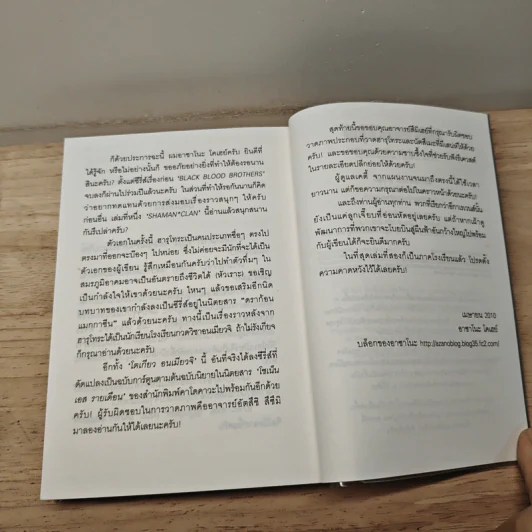 ก็ด้วยประการฉะนี้ ผมอาซาโนะ โคเฮย์ครับ ยินดีที่
ได้รู้จัก หรือไม่อย่างนั้นก็ ขออภัยอย่างยิ่งที่ทำให้ต้องรอนาน
สินะครับ? ตั้งแต่ซีรีส์เรื่องก่อน 'BLACK BLOOD BROTHERS'
จบลงก็ผ่านไปร่วมปีแล้วนะครับ ในส่วนที่ทำให้รอกันนานก็คิด
ว่าอยากทดแทนด้วยการส่งมอบเรื่องราวสนุกๆ ให้ครับ
ก่อนอื่น เล่มที่หนึ่ง 'SHAMAN*CLAN' นี้อ่านแล้วสนุกสนาน
กันรึเปล่าครับ?
ตัวเอกในครั้งนี้ ฮารุโทระเป็นคนประเภทซื่อๆ ตรงไป
ตรงมาที่ออกจะบ๊องๆ ไปหน่อย ซึ่งไม่ค่อยจะมีนักที่จะได้เป็น
ตัวเอกของผู้เขียน รู้สึกเหมือนกันครับว่าไปทำตัวทึ่มๆ ใน
สมรภูมิอาคมอาจจะเป็นอันตรายถึงชีวิตได้ (หัวเราะ) ขอเชิญ
เป็นกำลังใจให้เขาด้วยนะครับ ไหนๆ แล้วขอเสริมอีกนิด
บทบาทของเขากำลังลงเป็นซีรีส์อยู่ในนิตยสาร "ดราก้อน
แมกกาซีน" แล้วด้วยนะครับ ทางนี้เป็นเรื่องราวหลังจาก
ฮารุโทระได้เป็นนักเรียนโรงเรียนกวดวิชาองเมียวจิ ถ้าไม่รังเกียจ
ก็กรุณาอ่านด้วยนะครับ
อีกทั้ง 'โตเกียว องเมียวจิ' นี้ อันที่จริงได้ลงซีรีส์ที่
ดัดแปลงเป็นฉบับการ์ตูนตามต้นฉบับนิยายในนิตยสาร 'โชเน็น
เอส รายเดือน' ของสำนักพิมพ์คาโดคาวะไปพร้อมกันอีกด้วย
ครับ! ผู้รับผิดชอบในการวาดภาพคืออาจารย์อัตสึชิ สึซึมิ
มาลองอ่านกันให้ได้เลยนะครับ!
สุดท้ายนี้ขอขอบคุณอาจารย์สึมิเฮย์ที่กรุณารับผิดชอบ
วาดภาพประกอบที่วาดฮารุโทระและนัตสึเมะที่มีเสน่ห์ให้ด้วย
ครับ! และขอขอบคุณด้วยความซาบซึ้งใจที่ช่วยรับฟังรีเควสต์
ในรายละเอียดปลีกย่อยให้ด้วยครับ!
ผู้ดูแลเคดี จากแผนงานจนมาถึงตรงนี้ได้ใช้เวลา
ยาวนาน แต่ก็ขอความกรุณาต่อไปในคราวหน้าด้วยนะครับ!
และถึงท่านผู้อ่านทุกท่าน พวกที่เรียกว่าชิกิเรเวนส์นั้น
ยังเป็นแค่ลูกเจี๊ยบที่อ่อนหัดอยู่เลยครับ แต่ถ้าหากเฝ้าดู
พัฒนาการที่พวกเขาจะโบยบินสู่ผืนฟ้าอันกว้างใหญ่ไปพร้อม
กับผู้เขียนได้ก็จะยินดีมากครับ
ในที่สุดเล่มที่สองก็เป็นภาคโรงเรียนแล้ว โปรดตั้ง
ความคาดหวังไว้ได้เลยครับ!
เมษายน 2010
อาซาโนะ โคเฮย์
บล็อกของอาซาโนะ http://azanoblog.blog35.fc2.com/